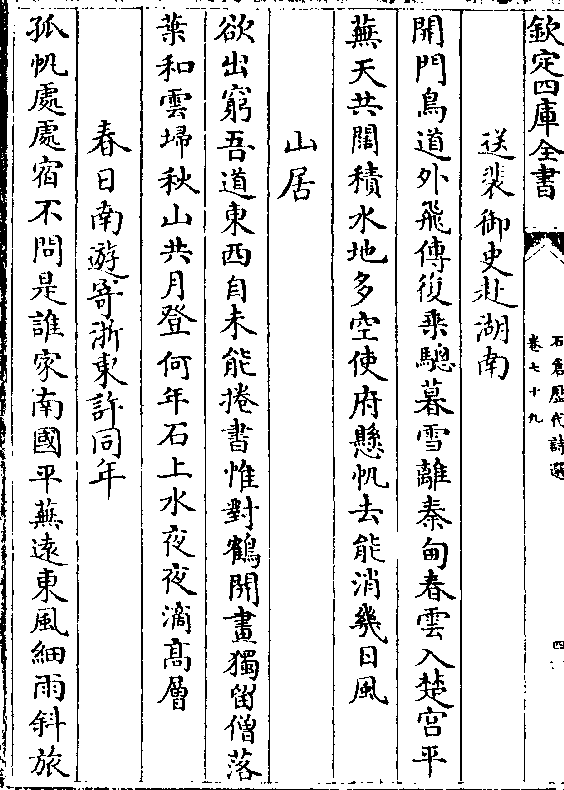 欽定四庫全書
石倉歴代詩選
卷七十九
四
送裴御史赴湖南
開門鳥道外飛傳復乘驄暮雪離秦甸春雲入楚宮平
蕪天共闊積水地多空使府懸帆去能消幾日風
山居
欲出窮吾道東西自未能捲書惟對鶴開畫獨留僧落
葉和雲埽秋山共月登何年石上水夜夜滴髙層
春日南遊寄浙東許同年
孤帆處處宿不問是誰家南國平蕪遠東風細雨斜旅